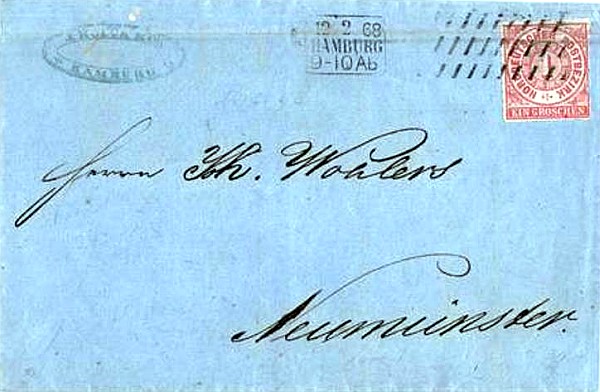 HAMBURG
12 2 68
HAMBURG
9-10 Ab
NORDDEUTSCHER POSTBEZIRK
1
EIN GROSCHEN
Herrn Joh. Wohlers
Neumünster.